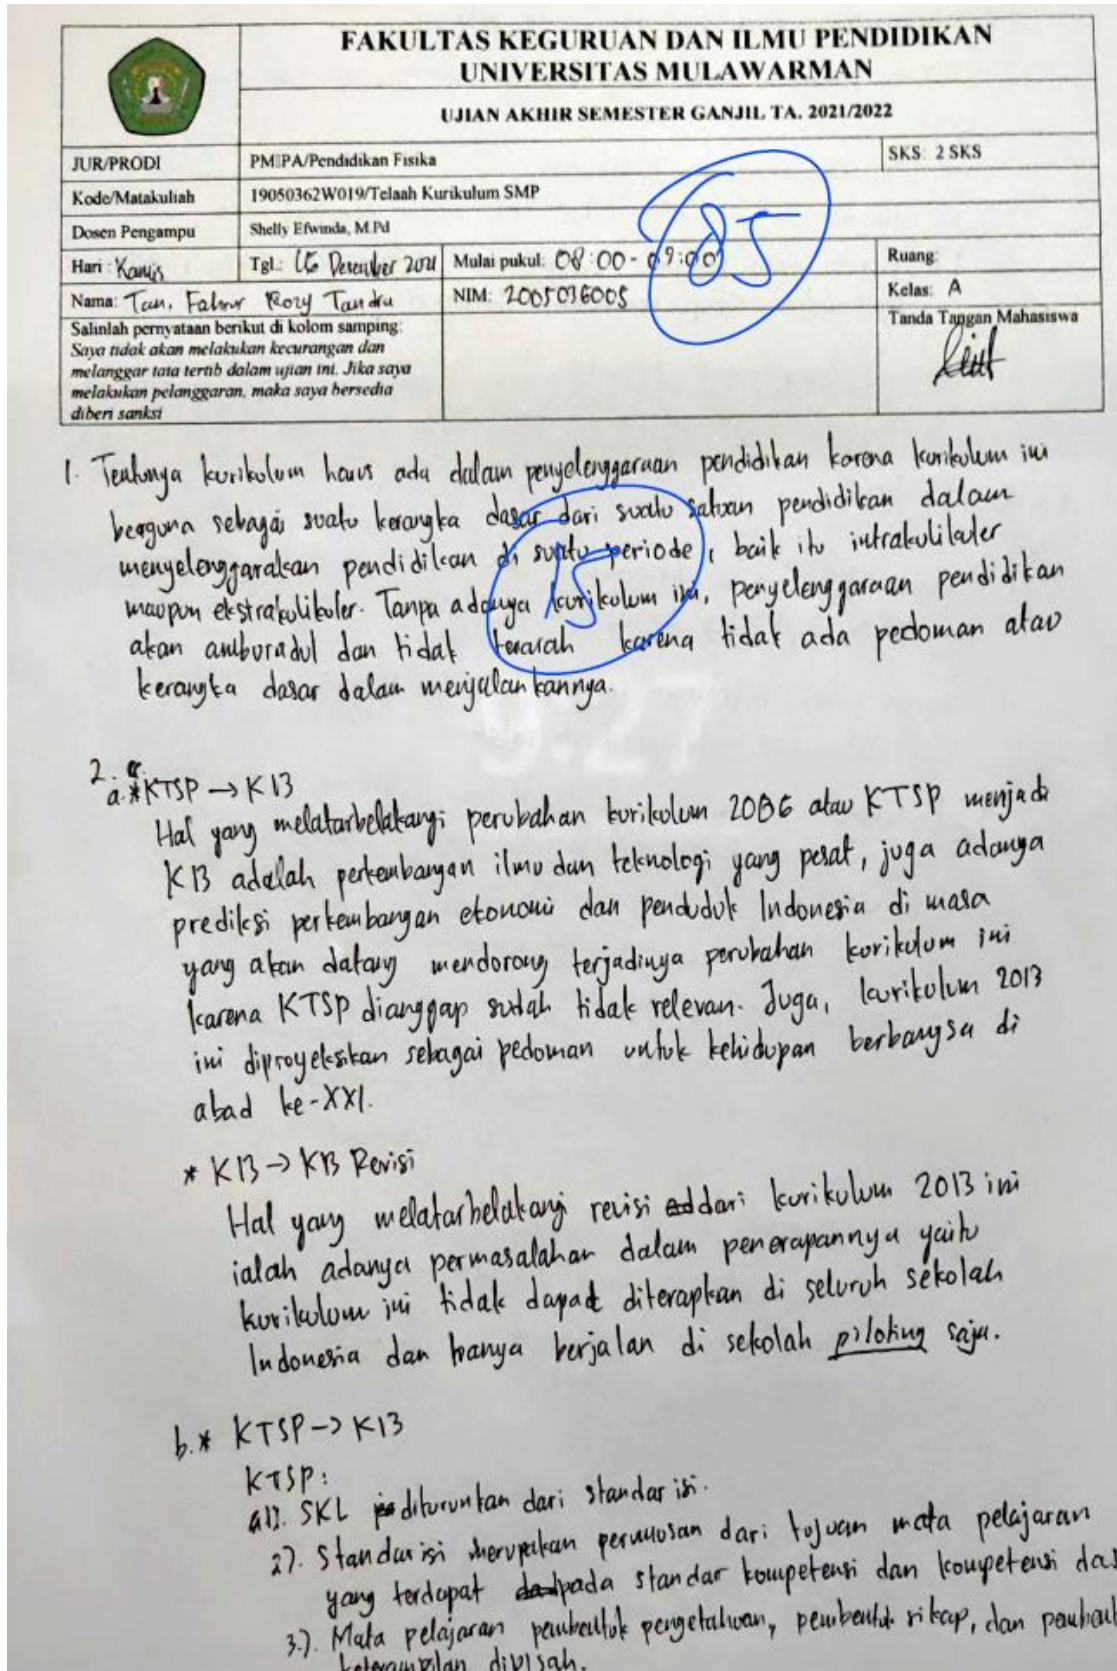 FAKULTAS KEGURUAN DAN ILMU PENDIDIKAN
UNIVERSITAS MULAWARMAN
UJIAN AKHIR SEMESTER GANJIL TA. 2021/2022
JUR/PRODI
PMIPA/Pendidikan Fisika
SKS: 2 SKS
Kode/Matakuliah
19050362W019/Telaah Kurikulum SMP
Dosen Pengampu
Shelly Efwinda, M.Pd
Hari : Kamis
Tgl.: Desember 2021
Mulai pukul: 08:00 - 09:00
Ruang:
85
Nama: Tan. Rozy Tandru
NIM: 2005036005
Kelas: A
Salinlah pernyataan berikut di kolom samping:
Saya tidak akan melakukan kecurangan dan
melanggar tata tertib dalam ujian ini. Jika saya
melakukan pelanggaran, maka saya bersedia
diberi sanksi
Tanda Tangan Mahasiswa
1. Tentunya kurikulum harus ada dalam penyelenggaraan pendidikan karena kurikulum ini
berguna sebagai suatu kerangka dasar dari suatu satuan pendidikan dalam
menyelenggarakan pendidikan di suatu periode, baik itu intrakulikuler
maupun ekstrakulikuler. Tanpa adanya kurikulum ini, penyelenggaraan pendidikan
akan amburadul dan tidak terarah karena tidak ada pedoman atau
kerangka dasar dalam menjalankannya.
15
9:27
2.
a.*KTSP → K13
Hal yang melatarbelakangi perubahan kurikulum 2006 atau KTSP menjadi
K13 adalah perkembangan ilmu dan teknologi yang pesat, juga adanya
prediksi perkembangan ekonomi dan penduduk Indonesia di masa
yang akan datang mendorong terjadinya perubahan kurikulum ini
karena KTSP dianggap sudah tidak relevan. Juga, kurikulum 2013
ini diproyeksikan sebagai pedoman untuk kehidupan berbangsa di
abad ke-XXI.
* K13 → K13 Revisi
Hal yang melatarbelakangi revisi dari kurikulum 2013 ini
ialah adanya permasalahan dalam penerapannya yaitu
kurikulum ini tidak dapat diterapkan di seluruh sekolah
Indonesia dan hanya berjalan di sekolah piloting saja.
b.* KTSP → K13
KTSP:
1). SKL diturunkan dari standar isi.
2). Standar isi merupakan perumusan dari tujuan mata pelajaran
yang terdapat pada standar kompetensi dan kompetensi das
3.). Mata pelajaran pembentuk pengetahuan, pembentuk sikap, dan pembent
keterampilan dipisah.